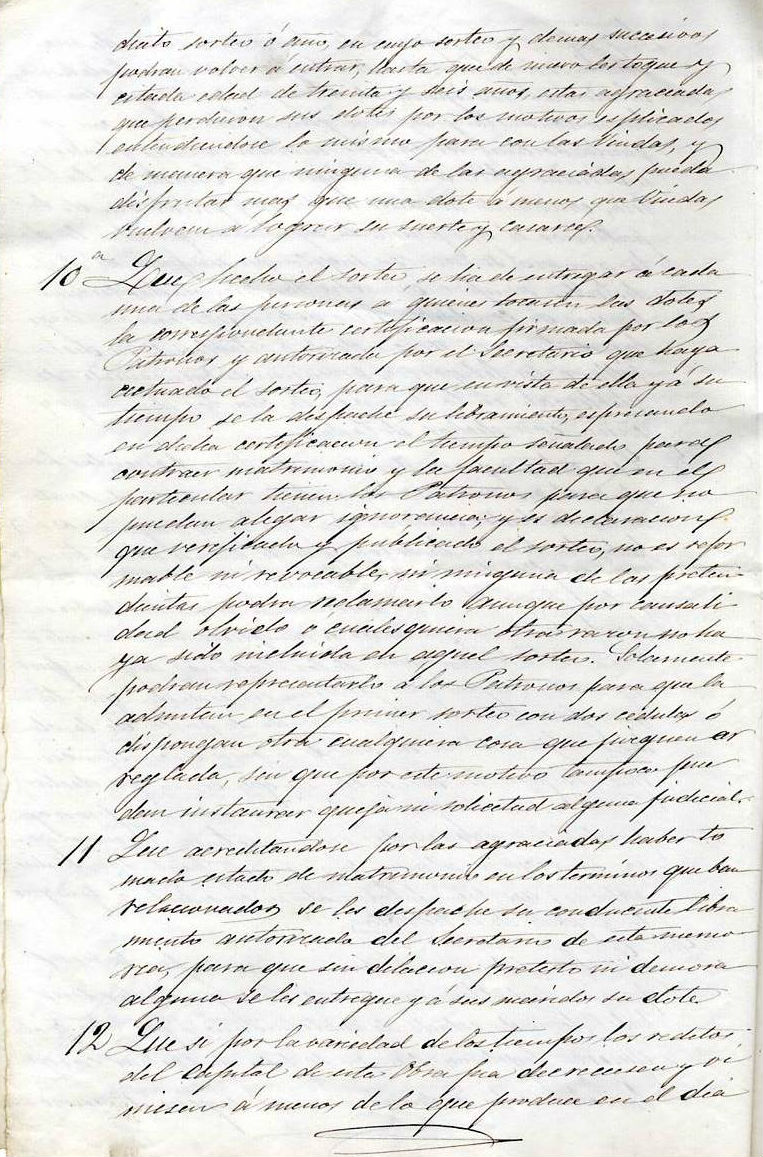 diato sorteo ó año, en cuyo sorteo y demas succesivos
podran volver á entrar, hasta que de nuevo les toque y
citada edad de treinta y seis anos, estas agraciadas
que perdieron sus dotes por los motivos esplicados
entendiendose lo mismo para con las viudas, y
de manera que ninguna de las agraciadas pueda
disfrutar mas que una dote á menos que viudas
vuelvan á lograr su suerte y casarse.
10ª Que, hecho el sorteo, se ha de entregar á cada
una de las personas a quienes tocaren las dotes
la correspondiente certificacion firmada por los
Patronos y autorizada por el Secretario que haya
actuado el sorteo, para que en vista de ella y á su
tiempo se la despache su libramiento, espresando
en dicha certificacion el tiempo señalado para
contraer matrimonio y la facultad que en el
particular tienen los Patronos para que no
puedan alegar ignorancia, y es declaracion
que verificado y publicado el sorteo, no es refor
mable ni revocable, ni ninguna de las preten
dientas podra reclamarlo aunque por causali
dad olvido o cualesquiera otra razon no ha
ya sido incluida en aquel sorteo. Solamente
podran representarlo a los Patronos para que la
admitan en el primer sorteo con dos cedulas ó
dispongan otra cualquiera cosa que juzguen ar
reglada, sin que por este motivo tampoco pue
dan instaurar queja ni solicitud alguna judicial.
11 Que acreditandose por las agraciadas haber to
mado estado de matrimonio en los terminos que ban
relacionados se les despache su conducente libra
miento autorizado del Secretario de esta memo
ria, para que sin dilacion pretesto ni demora
alguna se les entregue y á sus maridos su dote
12 Que si por la variedad de los tiempos los reditos
del capital de esta Obra pia decreciesen y vi
niesen á menos de lo que produce en el dia